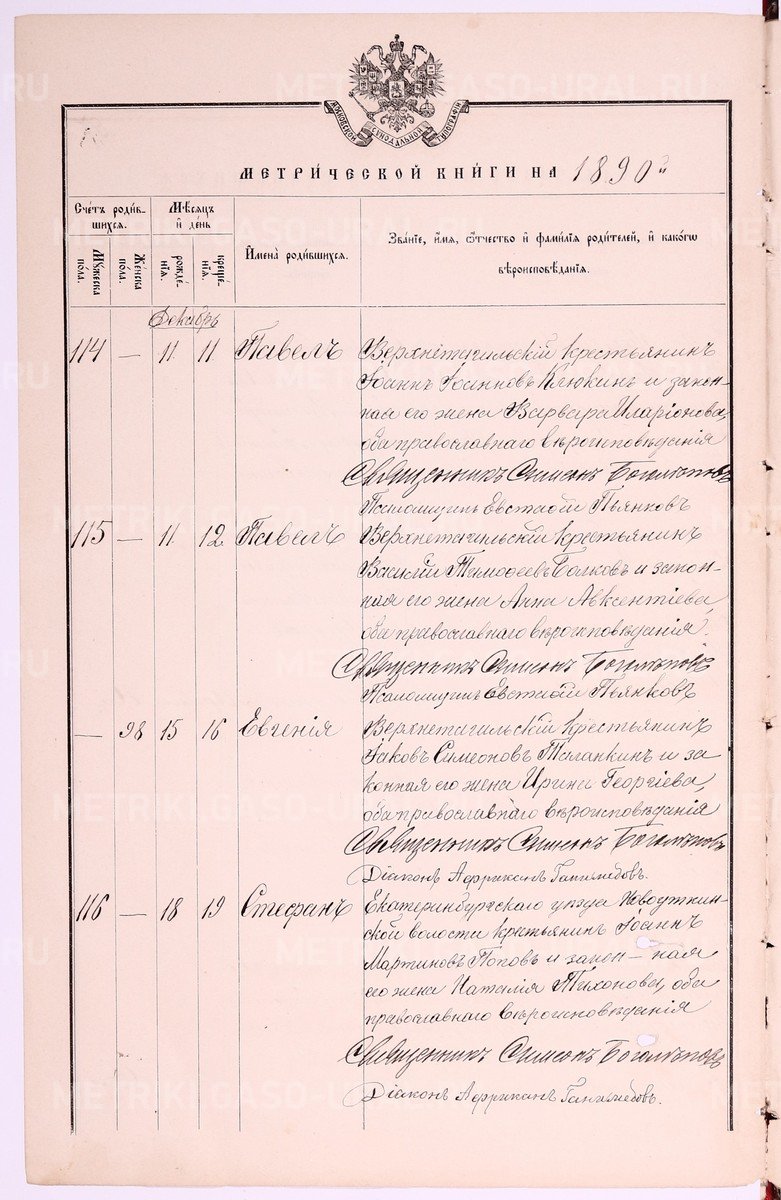 МОСКОВСКОЙ СѴНОДАЛЬНОЙ ТИПОГРАФІИ
МЕТРИ́ЧЕСКОЙ КНИ́ГИ НА 1890 й
Сче́тъ роди́в-
шихся.
Му́жеска по́ла.
Же́нска по́ла.
Мѣ́сяцъ и де́нь
рожде́нія.
креще́нія.
И҆мена̀ роди́вшихся.
Зва́ніе, и́мя, ѻ҆́тчество и҆ фами́лія роди́телей, и҆ како́гѡ
вѣроисповѣ́данія.
Декабрь
114 — 11 11 Павелъ Верхнетагильскій крестьянинъ
Іоаннъ Іоанновъ Клюкинъ и закон-
ная его жена Варвара Иларіонова,
оба православнаго вѣроисповѣданія
Священникъ Симеонъ Боголѣповъ
Псаломщикъ Евстафій Пьянковъ
115 — 11 12 Павелъ Верхнетагильскій крестьянинъ
Василій Тимофеевъ Волковъ и закон-
ная его жена Анна Авксентіева,
оба православнаго вѣроисповѣданія.
Священникъ Симеонъ Боголѣповъ
Псаломщикъ Евстафій Пьянковъ
— 98 15 16 Евгенія Верхнетагильскій крестьянинъ
Іаковъ Симеоновъ Таланкинъ и за
конная его жена Ирина Георгіева,
оба православнаго вѣроисповѣданія
Священникъ Симеонъ Боголѣповъ
Діаконъ Африканъ
116 — 18 19 Стефанъ Екатеринбургскаго уѣзда Новоуткин-
ской волости крестьянинъ Іоаннъ
Мартиновъ Поповъ и закон-ная
его жена Наталія Тихонова, оба
православнаго вѣроисповѣданія
Священникъ Симеонъ Боголѣповъ
Діаконъ Африканъ
METRIKI.GASO-URAL.RU